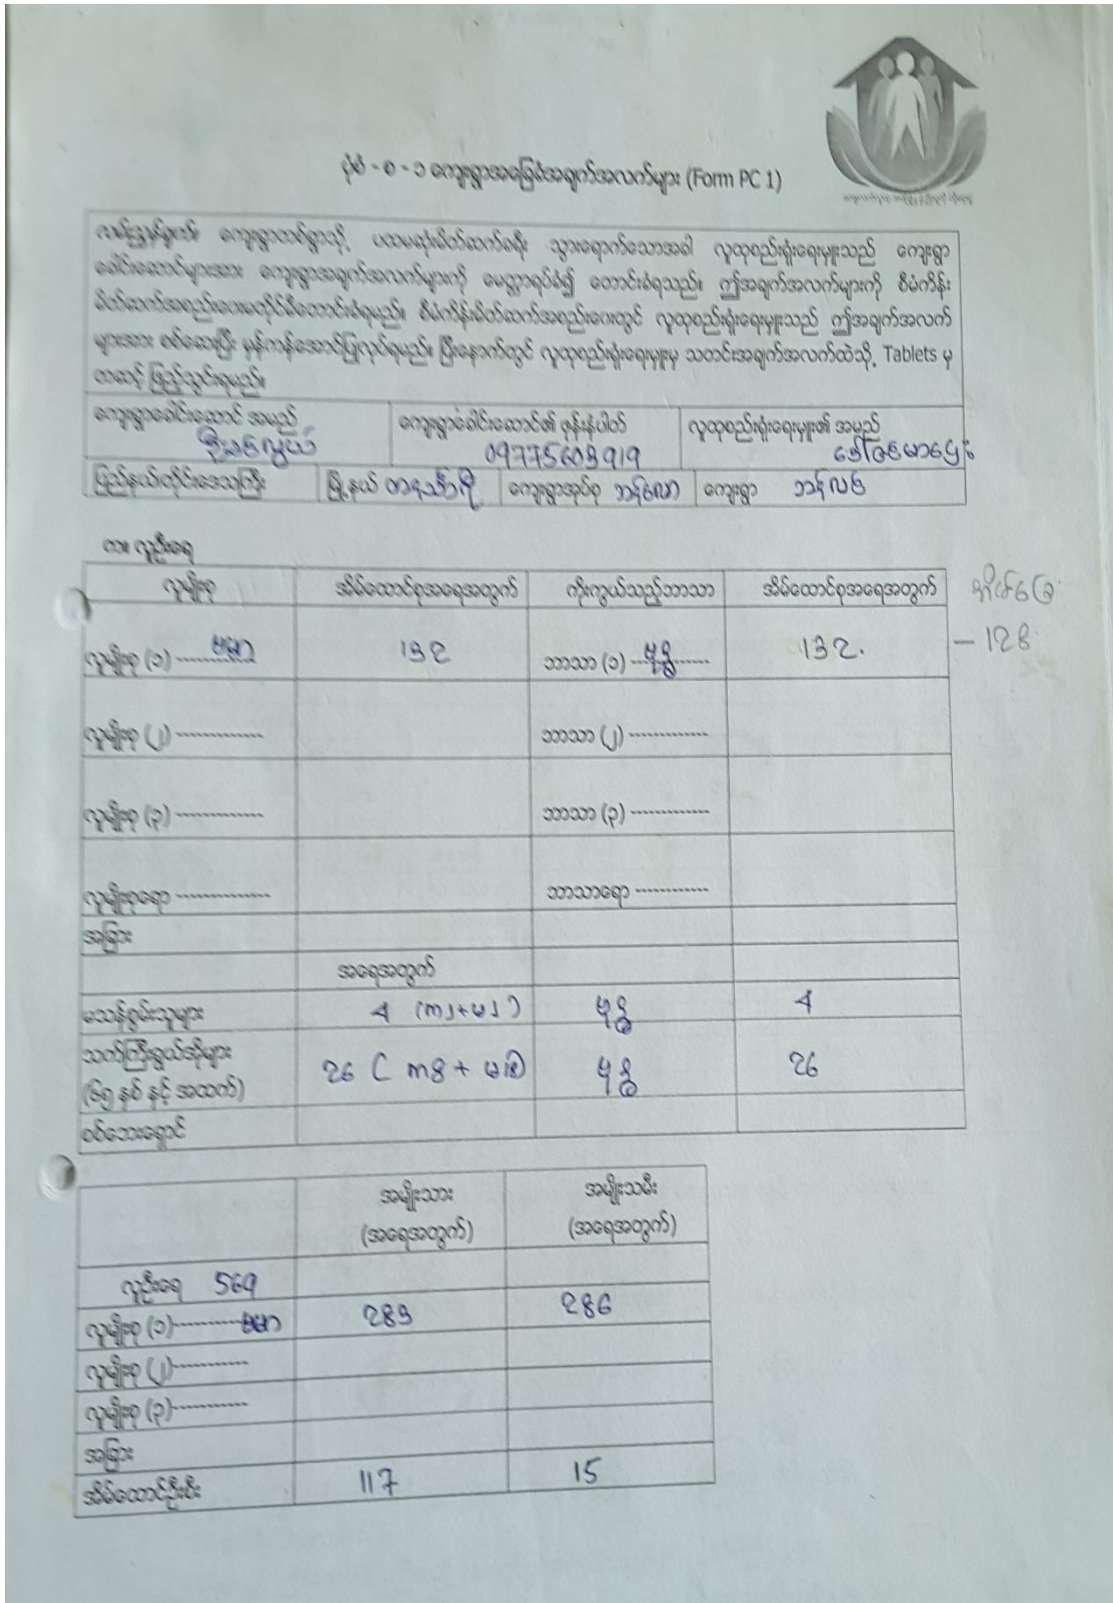 ပုံစံ - စ - ၁ ကျေးရွာအခြေခံအချက်အလက်များ (Form PC 1)
လမ်းညွှန်ချက်။ ကျေးရွာတစ်ရွာသို့ ပထမဆုံးမိတ်ဆက်ခရီး သွားရောက်သောအခါ လူထုစည်းရုံးရေးမှူးသည် ကျေးရွာ
ခေါင်းဆောင်များအား ကျေးရွာအချက်အလက်များကို မေတ္တာရပ်ခံ၍ တောင်းခံရသည်။ ဤအချက်အလက်များကို စီမံကိန်း
မိတ်ဆက်အစည်းဝေးမတိုင်မီတောင်းခံရမည်။ စီမံကိန်းမိတ်ဆက်အစည်းဝေးတွင် လူထုစည်းရုံးရေးမှူးသည် ဤအချက်အလက်
များအား စစ်ဆေးပြီး မှန်ကန်အောင်ပြုလုပ်ရမည်။ ပြီးနောက်တွင် လူထုစည်းရုံးရေးမှူးမှ သတင်းအချက်အလက်ထဲသို့ Tablets မှ
တဆင့် ဖြည့်သွင်းရမည်။
ကျေးရွာခေါင်းဆောင် အမည် ကျေးရွာခေါင်းဆောင်၏ ဖုန်းနံပါတ် လူထုစည်းရုံးရေးမှူး၏ အမည်
09775603919
ပြည်နယ်/တိုင်းဒေသကြီး မြို့နယ် တနင်္သာရီ ကျေးရွာအုပ်စု ဘန်လော ကျေးရွာ
က။ လူဦးရေ
လူမျိုးစု အိမ်ထောင်စုအရေအတွက် ကိုးကွယ်သည့်ဘာသာ အိမ်ထောင်စုအရေအတွက်
လူမျိုးစု (၁) ------------- ဗမာ 132 ဘာသာ (၁) ------------- ဗုဒ္ဓ 132. – 128
လူမျိုးစု (၂) ------------- ဘာသာ (၂) -------------
လူမျိုးစု (၃) ------------- ဘာသာ (၃) -------------
လူမျိုးစုရော -------------- ဘာသာရော ------------
အခြား
အရေအတွက်
မသန်စွမ်းသူများ 4 (ကျ၂+မ၂) ဗုဒ္ဓ 4
သက်ကြီးရွယ်အိုများ
(၆၅ နှစ် နှင့် အထက်) 26 ဗုဒ္ဓ 26
စစ်ဘေးရှောင်
အမျိုးသား အမျိုးသမီး
(အရေအတွက်) (အရေအတွက်)
လူဦးရေ 569
လူမျိုးစု (၁)---------- ဗမာ 283 286
လူမျိုးစု (၂)------------
လူမျိုးစု (၃)------------
အခြား
အိမ်ထောင်ဦးစီး 117 15